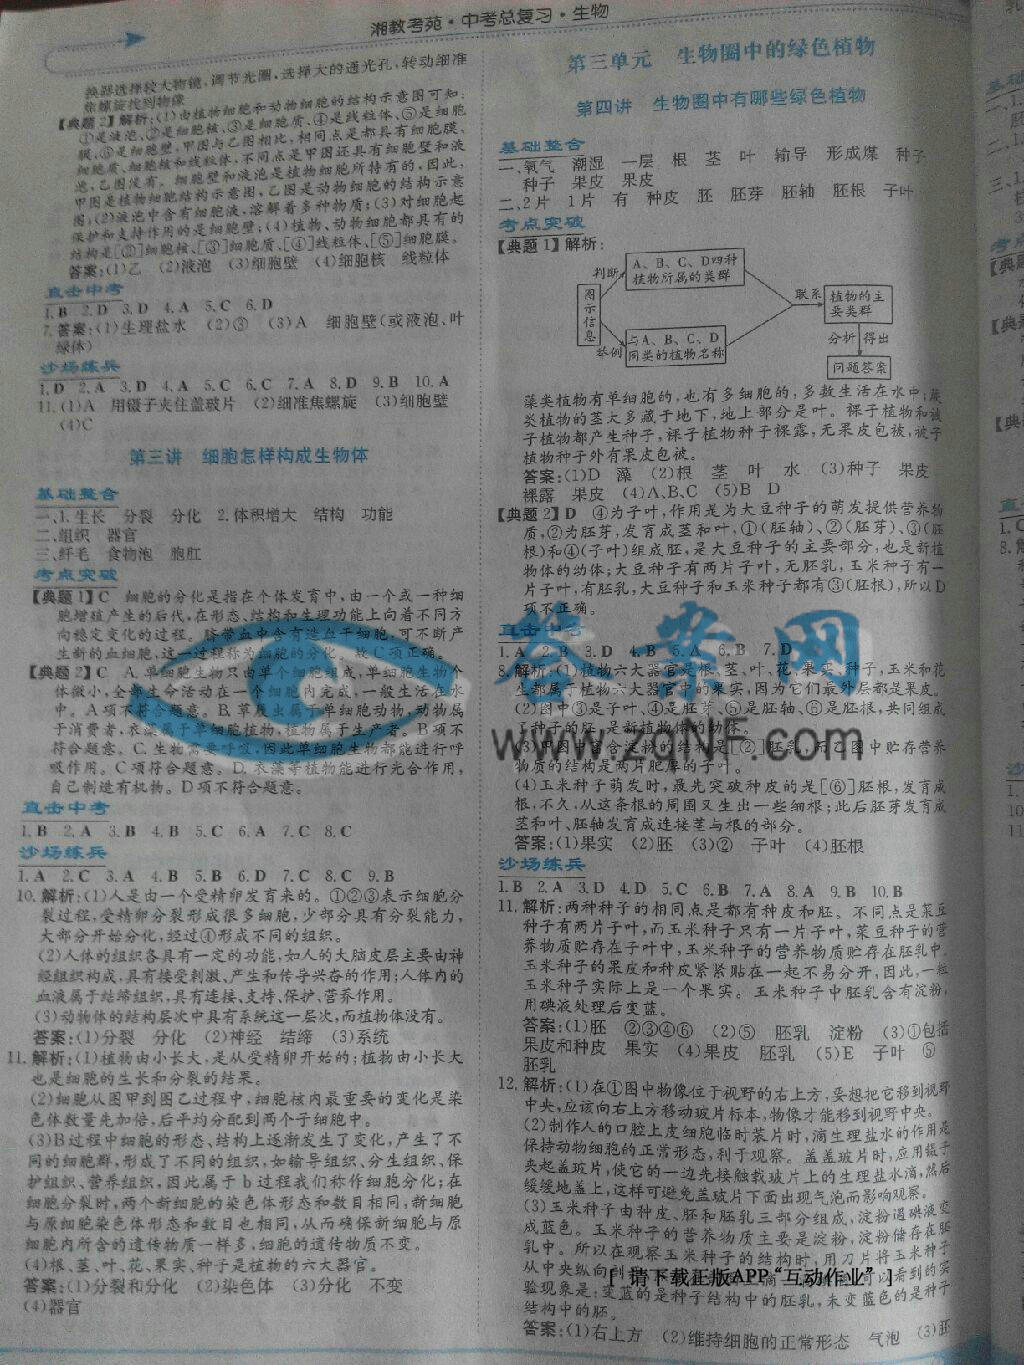 湘教考苑·中考总复习·生物
换器选择较大物镜,调节光圈,选择大的通光孔,转动细准
焦螺旋找到物像
【典题2】解析:(1)由植物细胞和动物细胞的结构示意图可知:
①是液泡、②是细胞核、③是细胞质、④是线粒体、⑤是细胞
膜、⑥是细胞壁,甲图与乙图相比,相同点是都具有细胞膜、
细胞质、细胞核和线粒体,不同点是甲图还具有细胞壁和液
泡,乙图没有。细胞壁和液泡是植物细胞所特有的,因此,
甲图是植物细胞结构示意图,乙图是动物细胞的结构示意
图;(2)液泡中含有细胞液,溶解着多种物质;(3)对细胞起
保护和支持作用的是细胞壁;(4)植物、动物细胞都具有的
结构是[②]细胞核、[③]细胞质、[④]线粒体、[⑤]细胞膜。
答案:(1)乙 (2)液泡 (3)细胞壁 (4)细胞核 线粒体
直击中考
1.B 2.D 3.D 4.A 5.C 6.D
7.答案:(1)生理盐水 (2)③ (3)A 细胞壁(或液泡、叶
绿体)
沙场练兵
1.D 2.A 3.D 4.A 5.C 6.C 7.A 8.D 9.B 10.A
11.(1)A 用镊子夹住盖玻片 (2)细准焦螺旋 (3)细胞壁
(4)C
第三讲 细胞怎样构成生物体
基础整合
一、1.生长 分裂 分化 2.体积增大 结构 功能
二、组织 器官
三、纤毛 食物泡 胞肛
考点突破
【典题1】C 细胞的分化是指在个体发育中,由一个或一种细
胞增殖产生的后代,在形态、结构和生理功能上向着不同方
向稳定变化的过程。脐带血中含有造血干细胞,可不断产
生新的血细胞,这一过程称为细胞的分化。故C项正确。
【典题2】C A.单细胞生物只由单个细胞组成,单细胞生物个
体微小,全部生命活动在一个细胞内完成,一般生活在水
中。A项不符合题意。B.草履虫属于单细胞动物,动物属
于消费者,衣藻属于单细胞植物,植物属于生产者。B项不
符合题意。C.生物需要呼吸,因此单细胞生物都能进行呼
吸作用。C项符合题意。D.衣藻等植物能进行光合作用,
自己制造有机物。D项不符合题意。
直击中考
1.B 2.A 3.B 4.B 5.C 6.A 7.C 8.C
沙场练兵
1.A 2.C 3.A 4.B 5.B 6.D 7.C 8.C 9.B
10.解析:(1)人是由一个受精卵发育来的。①②③表示细胞分
裂过程,受精卵分裂形成很多细胞,少部分具有分裂能力,
大部分开始分化,经过④形成不同的组织。
(2)人体的组织各具有一定的功能,如人的大脑皮层主要由神
经组织构成,具有接受刺激、产生和传导兴奋的作用;人体内的
血液属于结缔组织,具有连接、支持、保护、营养作用。
(3)动物体的结构层次中具有系统这一层次,而植物体没有。
答案:(1)分裂 分化 (2)神经 结缔 (3)系统
11.解析:(1)植物由小长大,是从受精卵开始的;植物由小长大
也是细胞的生长和分裂的结果。
(2)细胞从图甲到图乙过程中,细胞核内最重要的变化是染
色体数量先加倍,后平均分配到两个子细胞中。
(3)B过程中细胞的形态、结构上逐渐发生了变化,产生了不
同的细胞群,形成了不同的组织,如输导组织、分生组织、保
护组织、营养组织,因此属于b过程我们称作细胞分化;在
细胞分裂时,两个新细胞的染色体形态和数目相同,新细胞
与原细胞染色体形态和数目也相同,从而确保新细胞与原
细胞内所含的遗传物质一样多,细胞的遗传物质不变。
(4)根、茎、叶、花、果实、种子是植物的六大器官。
答案:(1)分裂和分化 (2)染色体 (3)分化 不变
(4)器官
第三单元 生物圈中的绿色植物
第四讲 生物圈中有哪些绿色植物
基础整合
一、氧气 潮湿 一层 根 茎 叶 输导 形成煤 种子
种子 果皮 果皮
二、2片 1片 有 种皮 胚 胚芽 胚轴 胚根 子叶
考点突破
【典题1】解析:
图示信息
判断
A、B、C、D四种植物所属的类群
举例
与A、B、C、D同类的植物名称
联系
植物的主要类群
分析 得出
问题答案
藻类植物有单细胞的,也有多细胞的,多数生活在水中;蕨
类植物的茎大多藏于地下,地上部分是叶。裸子植物和被
子植物都产生种子,裸子植物种子裸露,无果皮包被,被子
植物种子外有果皮包被。
答案:(1)D 藻 (2)根 茎 叶 水 (3)种子 果皮
裸露 果皮 (4)A、B、C (5)B D
【典题2】D ④为子叶,作用是为大豆种子的萌发提供营养物
质,②为胚芽,发育成茎和叶,①(胚轴)、②(胚芽)、③(胚
根)和④(子叶)组成胚,是大豆种子的主要部分,也是新植
物体的幼体;大豆种子有两片子叶,无胚乳,玉米种子有一
片子叶,有胚乳,大豆种子和玉米种子都有③(胚根),所以D
项不正确。
直击中考
1.A 2.B 3.D 4.B 5.A 6.B 7.D
8.解析:(1)植物六大器官是根、茎、叶、花、果实、种子,玉米和花
生都属于植物六大器官中的果实,因为它们最外层都是果皮。
(2)图中③是子叶、④是胚芽、⑤是胚轴、⑥是胚根,共同组成
了种子的胚,是新植物体的幼体。
(3)甲图中富含淀粉的结构是[②]胚乳,而乙图中贮存营养
物质的结构是两片肥厚的子叶。
(4)玉米种子萌发时,最先突破种皮的是[⑥]胚根,发育成
根,不久,从这条根的周围又生出一些细根;此后胚芽发育成
茎和叶、胚轴发育成连接茎与根的部分。
答案:(1)果实 (2)胚 (3)② 子叶 (4)胚根
沙场练兵
1.B 2.A 3.D 4.D 5.C 6.B 7.A 8.A 9.B 10.B
11.解析:两种种子的相同点是都有种皮和胚。不同点是菜豆
种子有两片子叶,而玉米种子只有一片子叶,菜豆种子的营
养物质贮存在子叶中,玉米种子的营养物质贮存在胚乳中。
玉米种子的果皮和种皮紧紧贴在一起不易分开,因此,一粒
玉米种子实际上是一个果实。玉米种子中胚乳含有淀粉,
用碘液处理后变蓝。
答案:(1)胚 ②③④⑥ (2)⑤ 胚乳 淀粉 (3)①包括
果皮和种皮 果实 (4)果皮 胚乳 (5)E 子叶 ⑤
胚乳
12.解析:(1)在①图中物像位于视野的右上方,要想把它移到视野
中央,应该向右上方移动玻片标本,物像才能移到视野中央。
(2)制作人的口腔上皮细胞临时装片时,滴生理盐水的作用是
保持动物细胞的正常形态,利于观察。盖盖玻片时,应用镊子
夹起盖玻片,使它的一边先接触载玻片上的生理盐水滴,然后
缓缓地盖上,这样可避免盖玻片下面出现气泡而影响观察。
(3)玉米种子由种皮、胚和胚乳三部分组成,淀粉遇碘液变
成蓝色。玉米种子的营养物质主要是淀粉,淀粉储存在胚
乳中。所以在观察玉米种子的结构时,用刀片将玉米种子
从中央纵向剖 可以看到的实
验现象是:变蓝的是种子结构中的胚乳,未变蓝色的是种子
结构中的胚。
答案:(1)右上方 (2)维持细胞的正常形态 气泡 (3)胚
www.zqNF.com
[ 请下载正版APP“互动作业” ]